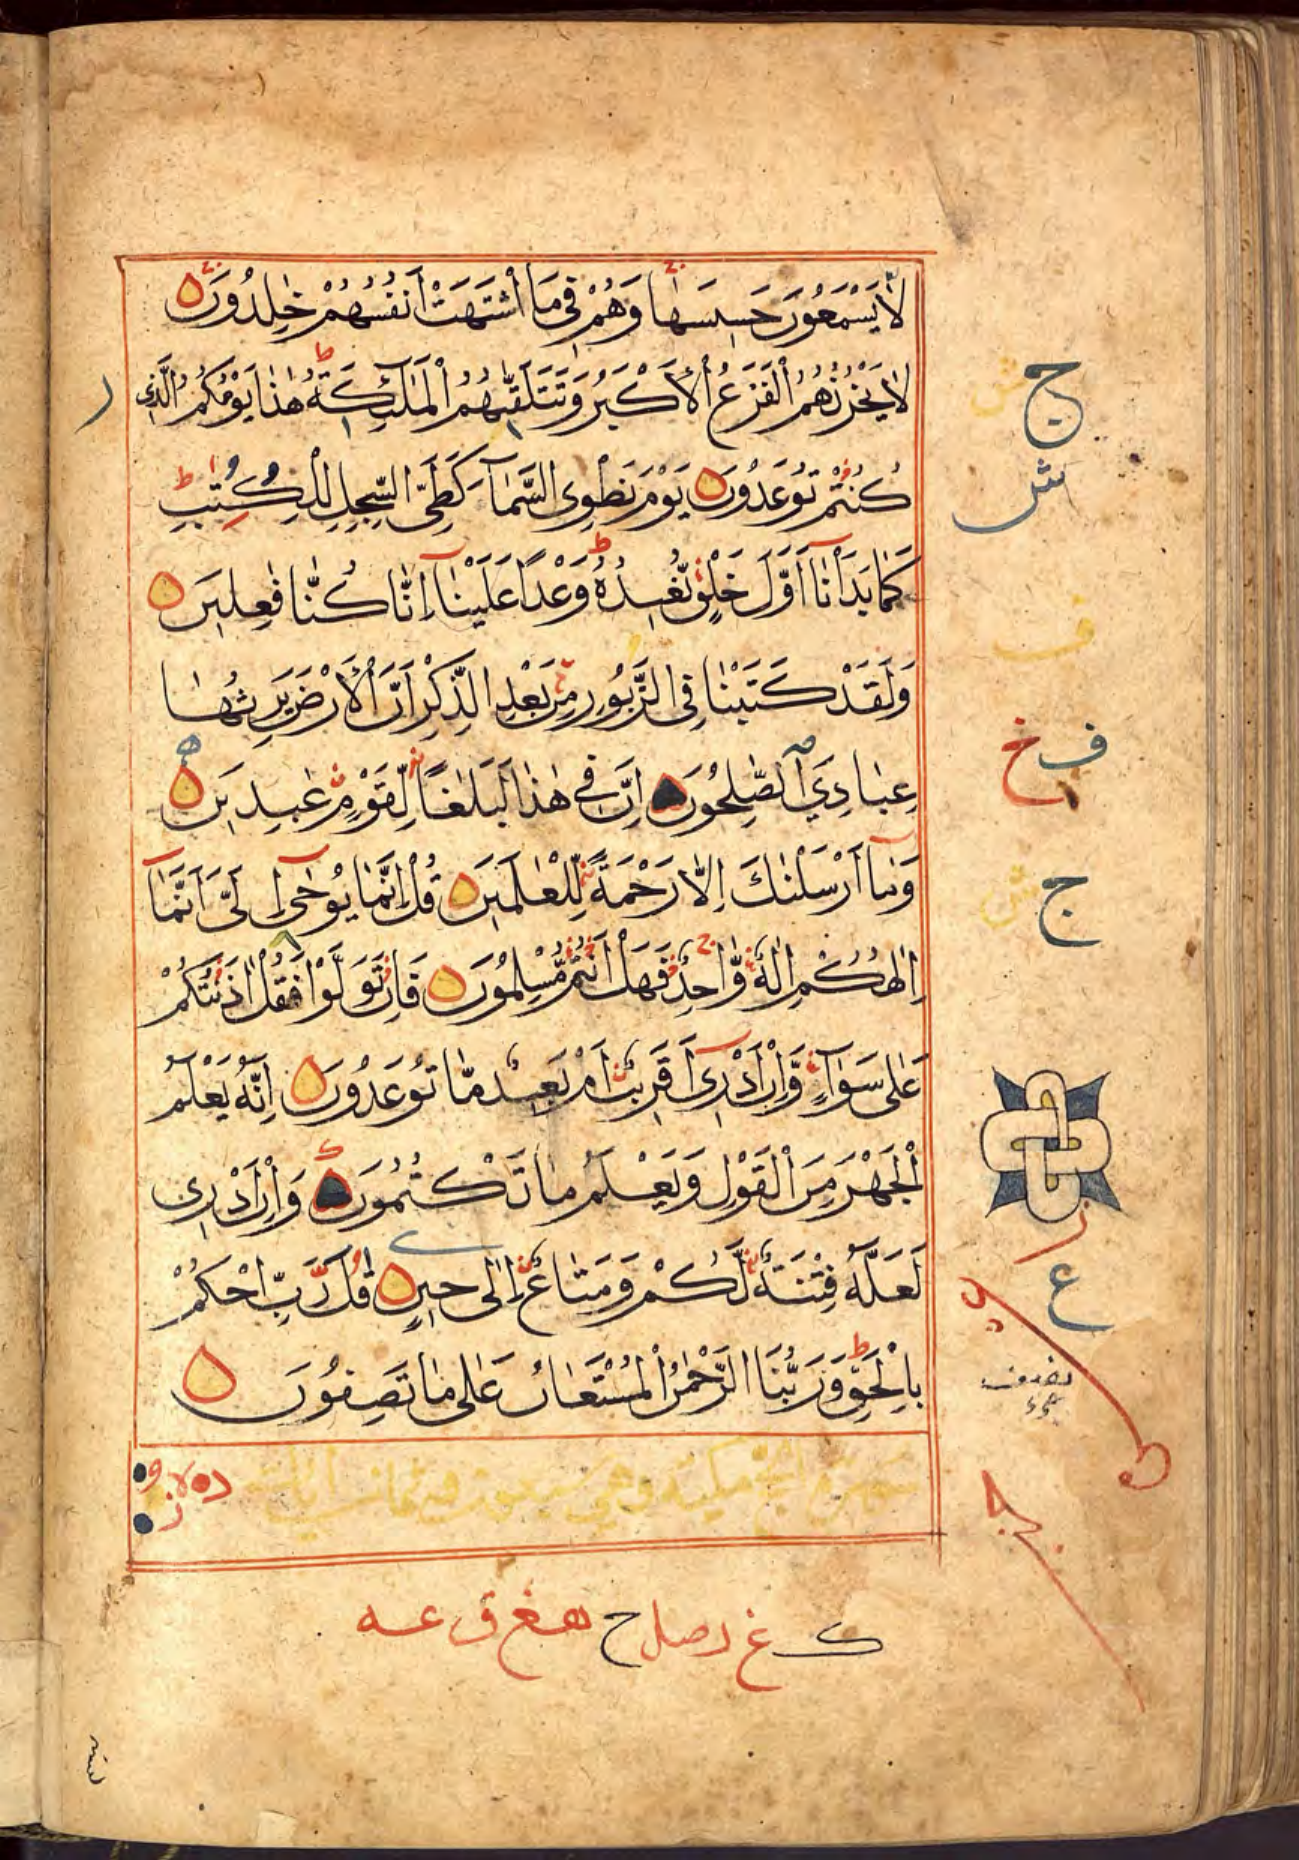 لَا يَسْمَعُونَ حَسِيسَهَا وَهُمْ فِي مَا اشْتَهَتْ أَنْفُسُهُمْ خٰلِدُونَ
لَا يَحْزُنُهُمُ الْفَزَعُ الْأَكْبَرُ وَتَتَلَقّٰىهُمُ الْمَلٰٓئِكَةُ هٰذَا يَوْمُكُمُ الَّذِي
كُنْتُمْ تُوعَدُونَ يَوْمَ نَطْوِي السَّمَآءَ كَطَيِّ السِّجِلِّ لِلْكُتُبِ
كَمَا بَدَأْنَآ أَوَّلَ خَلْقٍ نُّعِيدُهُ وَعْدًا عَلَيْنَآ إِنَّا كُنَّا فٰعِلِينَ
وَلَقَدْ كَتَبْنَا فِي الزَّبُورِ مِنْ بَعْدِ الذِّكْرِ أَنَّ الْأَرْضَ يَرِثُهَا
عِبَادِيَ الصّٰلِحُونَ إِنَّ فِي هٰذَا لَبَلٰغًا لِّقَوْمٍ عٰبِدِينَ
وَمَآ أَرْسَلْنٰكَ إِلَّا رَحْمَةً لِّلْعٰلَمِينَ قُلْ إِنَّمَا يُوحٰٓى إِلَيَّ أَنَّمَآ
إِلٰهُكُمْ إِلٰهٌ وَّاحِدٌ فَهَلْ أَنْتُمْ مُّسْلِمُونَ فَإِنْ تَوَلَّوْا فَقُلْ اٰذَنْتُكُمْ
عَلٰى سَوَآءٍ وَّإِنْ أَدْرِيٓ أَقَرِيبٌ أَمْ بَعِيدٌ مَّا تُوعَدُونَ إِنَّهُ يَعْلَمُ
الْجَهْرَ مِنَ الْقَوْلِ وَيَعْلَمُ مَا تَكْتُمُونَ وَإِنْ أَدْرِي
لَعَلَّهُ فِتْنَةٌ لَّكُمْ وَمَتَاعٌ إِلٰى حِينٍ قُلْ رَّبِّ احْكُمْ
بِالْحَقِّ وَرَبُّنَا الرَّحْمٰنُ الْمُسْتَعَانُ عَلٰى مَا تَصِفُونَ
ج
ش
ف خ
ج
ع